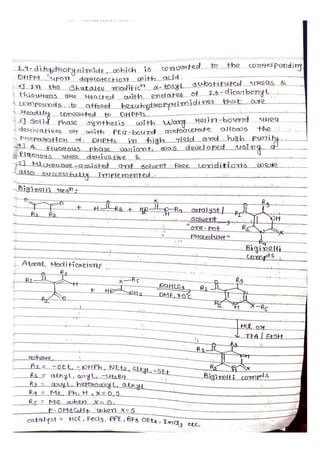 1,4-dihydropyrimide, which is converted to the corresponding
DHPM upon deprotection with acid.
2] In the Shutalev modific<sup>n</sup> α-tosyl substituted ureas &
thioureas are reacted with enolates of 1,3-dicarbonyl
compounds to afford hexahydropyrimidines that are
readily converted to DHPMs.
3] Solid phase synthesis with Wang resin-bound urea
derivatives or with PEG-bound acetoacetate allows the
preparation of DHPMs in high yield and high purity.
4] A fluorous phase variant was developed using a
fluorous urea derivative &
5] Microwave-assisted and solvent free conditions were
also successfully implemented.
Biginelli rea<sup>n</sup>:
catalyst /
solvent
"one-pot
procedure"
Biginelli
compls
Atwal Modification:
NaHCO3
DMF, 70°C
HCl or
TFA | EtSH
Biginelli compls
where,
R1 = -OEt, -NHPh, NEt2, alkyl, -SEt
R2 = alkyl, aryl, -CH2Br
R3 = aryl, heteroaryl, alkyl
R4 = Me, Ph, H, X = O, S
R5 = Me when X = O.
P-OMeC6H4 when X = S
catalyst = HCl, FeCl3, PPE, BF3 OEt2, InCl3 etc.